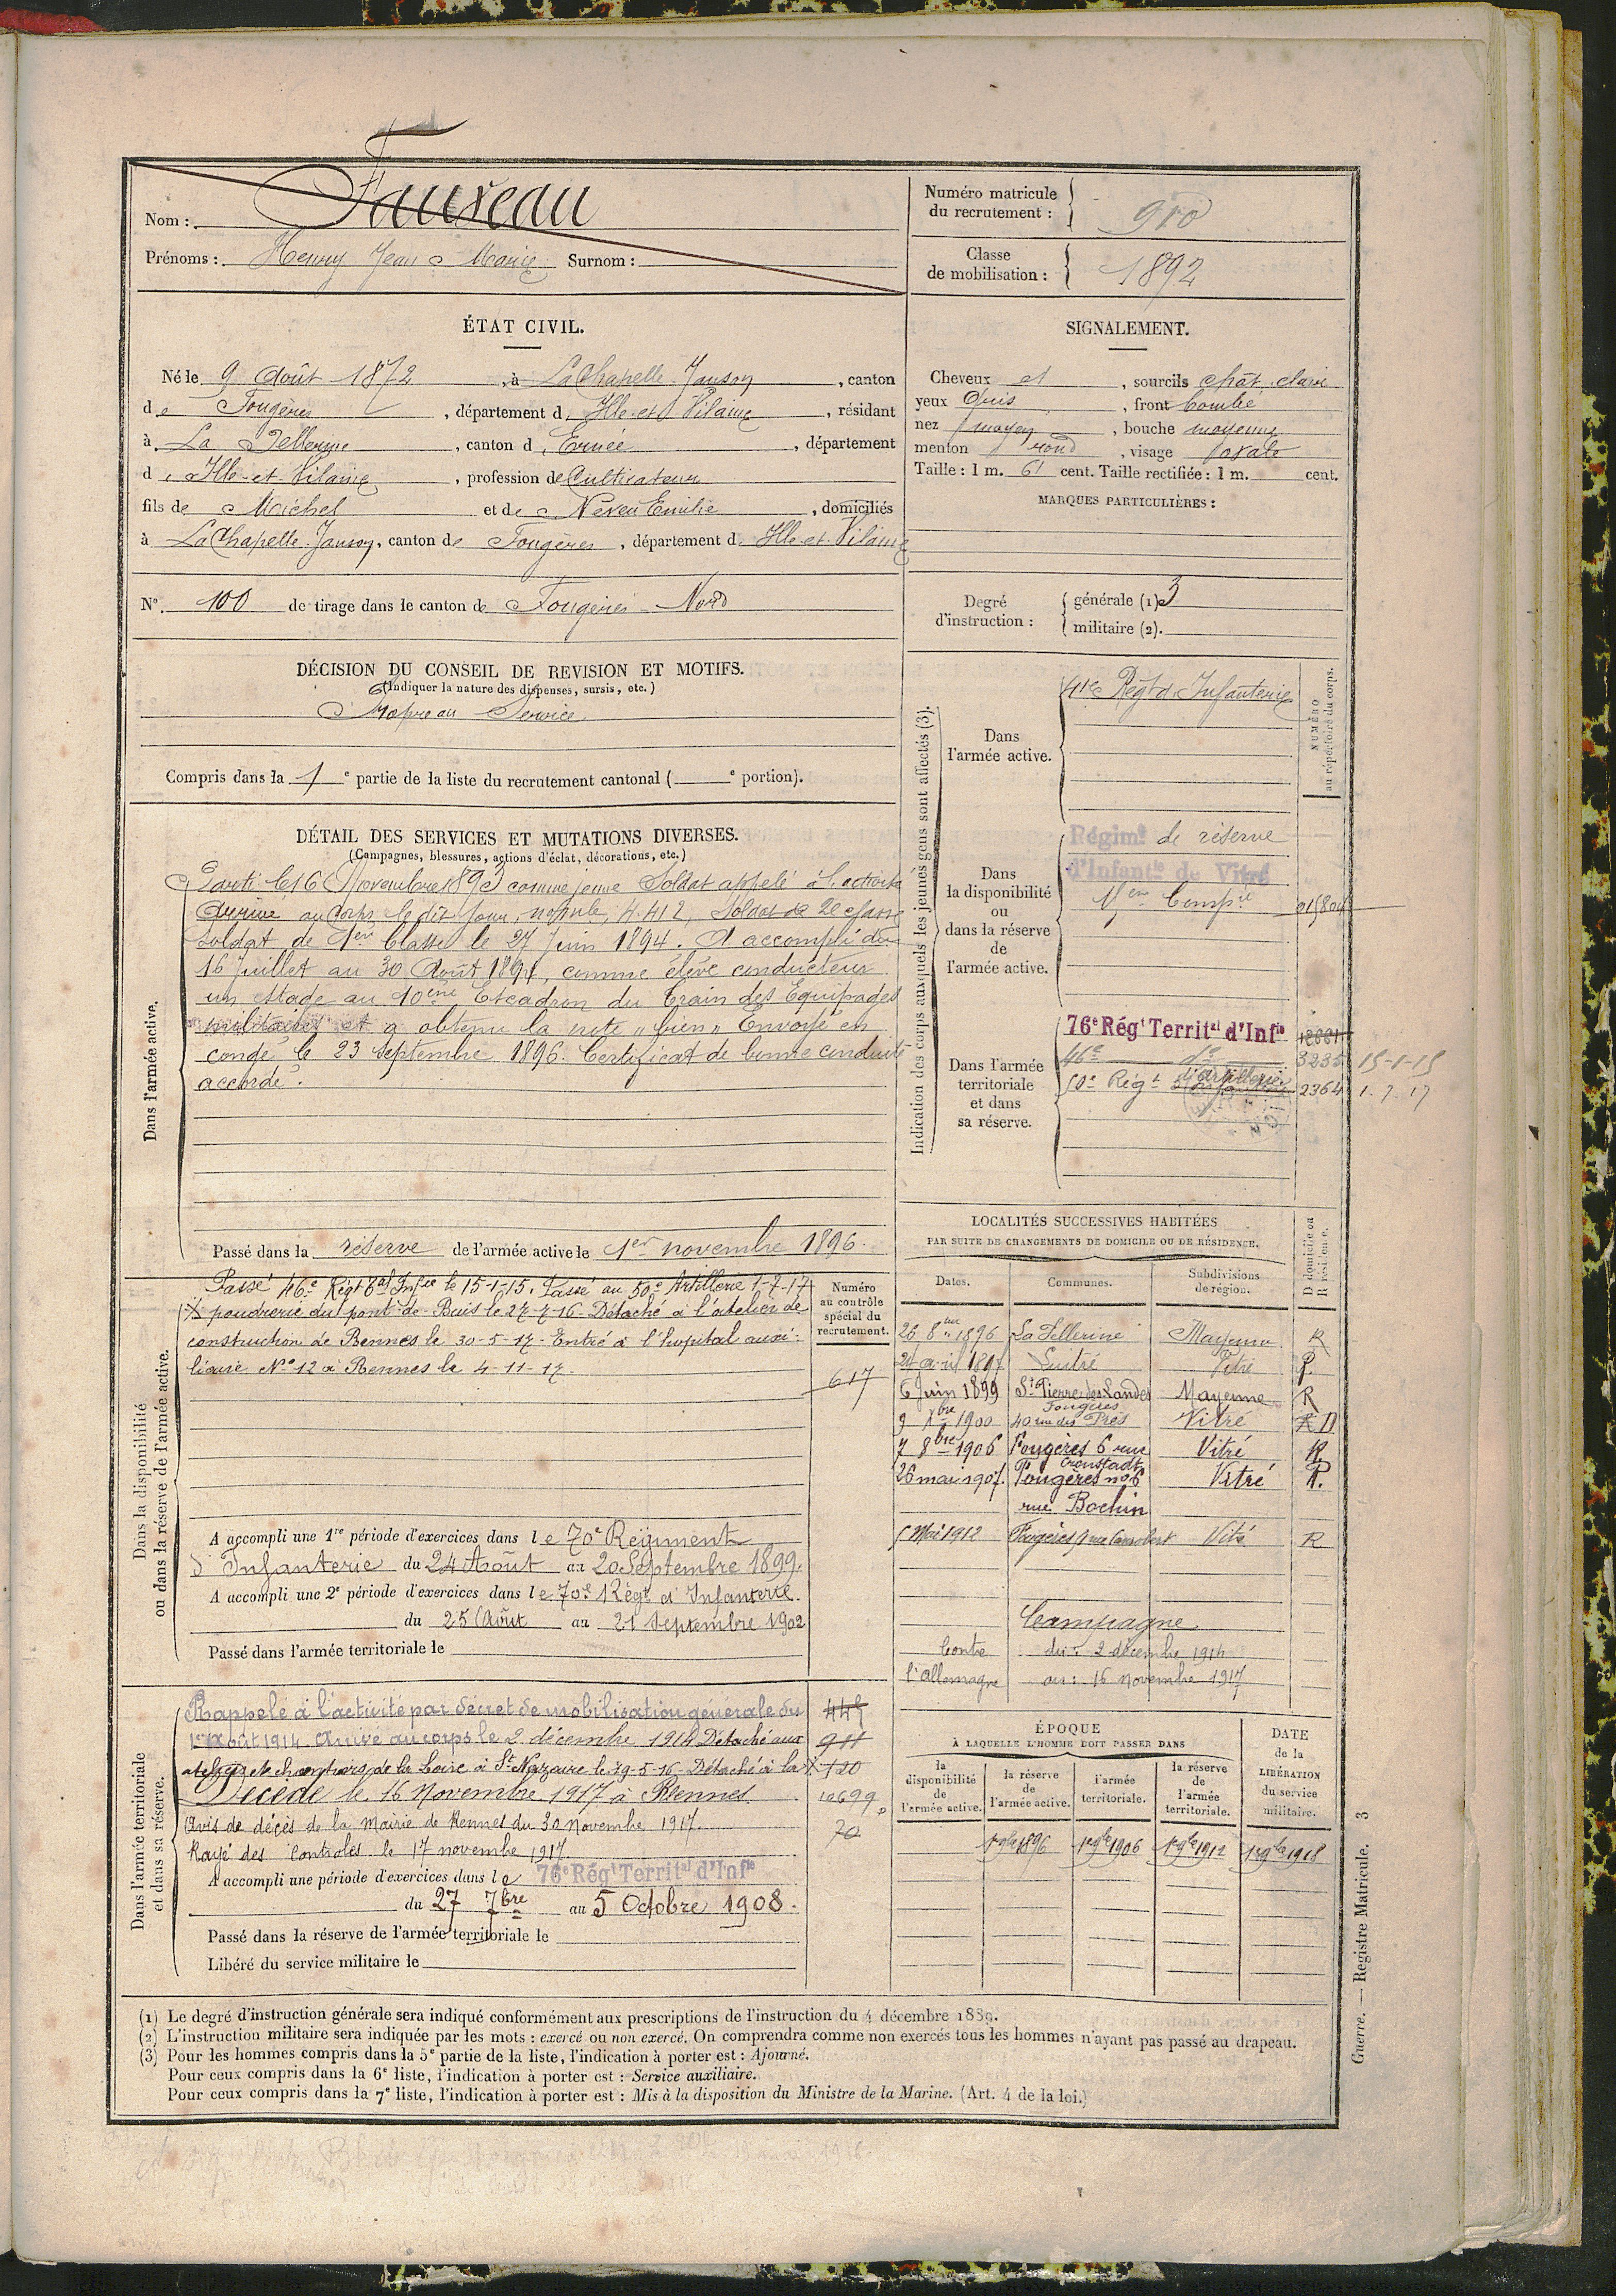 Nom : Fauveau
Prénoms : Henry Jean Marie Surnom :
Numéro matricule du recrutement : 910
Classe de mobilisation : 1892
ÉTAT CIVIL.
Né le 9 Août 1872, à La Chapelle-Janson, canton
de Fougères, département d'Ille-et-Vilaine, résidant
à La Pellerine, canton d'Ernée, département
d'Ille-et-Vilaine, profession de Cultivateur
fils de Michel et de Neveu Emilie, domiciliés
à La Chapelle-Janson, canton de Fougères, département d'Ille-et-Vilaine
N° 100 de tirage dans le canton de Fougères-Nord
SIGNALEMENT.
Cheveux et, sourcils chât. clair
yeux Gris, front bombé
nez moyen, bouche moyenne
menton rond, visage ovale
Taille : 1 m. 61 cent. Taille rectifiée : 1 m. cent.
MARQUES PARTICULIÈRES :
Degré d'instruction : générale (1) 3
militaire (2).
DÉCISION DU CONSEIL DE REVISION ET MOTIFS.
(Indiquer la nature des dispenses, sursis, etc.)
Propre au Service
Compris dans la 1e partie de la liste du recrutement cantonal ( e portion).
DÉTAIL DES SERVICES ET MUTATIONS DIVERSES.
(Campagnes, blessures, actions d'éclat, décorations, etc.)
Dans l'armée active.
Parti le 16 Novembre 1893 comme jeune Soldat appelé à l'activité
Arrivé au Corps le dit jour, nº mle 4.412, Soldat de 2e classe
Soldat de 1ère Classe le 27 Juin 1894. A accompli du
16 Juillet au 30 Août 1894, comme élève conducteur
un stage au 10ème Escadron du Train des Equipages
militaires et a obtenu la note "bien" Envoyé en
congé le 23 Septembre 1896. Certificat de bonne conduite
accordé.
Passé dans la réserve de l'armée active le 1er novembre 1896.
Indication des corps auxquels les jeunes gens sont affectés (3).
NUMÉRO au répertoire du corps.
Dans l'armée active.
41e Régt d'Infanterie
Dans la disponibilité ou dans la réserve de l'armée active.
Régimt de réserve
d'Infantie de Vitré
Dans l'armée territoriale et dans sa réserve.
76e Régt Territal d'Infie
46e do 3235 15-1-15
50e Régt d'Artillerie 2364 1.7.17
Dans la disponibilité ou dans la réserve de l'armée active.
Passé 46e Régt Tal Infie le 15-1-15. Passé au 50e Artillerie 1-7-17
X poudrerie du pont-de-Buis le 27-7-16 - Détaché à l'atelier de
construction de Rennes le 30-5-17 - Entré à l'hopital auxi-
liaire No 12 à Rennes le 4-11-17.
Numéro au contrôle spécial du recrutement.
617
A accompli une 1re période d'exercices dans le 70e Régiment
d'Infanterie du 24 Août au 20 Septembre 1899.
A accompli une 2e période d'exercices dans le 70e Régt d'Infanterie.
du 25 Août au 21 Septembre 1902
Passé dans l'armée territoriale le
LOCALITÉS SUCCESSIVES HABITÉES
PAR SUITE DE CHANGEMENTS DE DOMICILE OU DE RÉSIDENCE.
Dates. Communes. Subdivisions de région. D domicile ou R résidence.
26 8bre 1896 La Pellerine Mayenne R
1897 Luitré Vitré
6 Juin 1899 St Pierre des Landes Mayenne R
9 Xbre 1900 Fougères 40 rue des Prés Vitré D
7 8bre 1906 Fougères 6 rue Cronstadt Vitré R
26 mai 1907. Fougères no 6 rue Bochin Vitré R.
Mai 1912 Fougères 9 rue Canrobert Vitré R
Campagne
Contre l'allemagne
du : 2 décembre 1914
au : 16 novembre 1917
Dans l'armée territoriale et dans sa réserve.
Rappelé à l'activité par décret de mobilisation générale du
1er Août 1914. Arrivé au corps le 2 décembre 1914 Détaché aux
ateliers et chantiers de la Loire à St Nazaire le 19-5-16 - Détaché à la X
Décédé le 16 Novembre 1917 à Rennes.
Avis de décès de la mairie de Rennes du 30 Novembre 1917.
Rayé des Contrôles le 17 novembre 1917
911
120
10699
70
A accompli une période d'exercices dans le 76e Régt Territal d'Infie
du 27 7bre au 5 Octobre 1908.
Passé dans la réserve de l'armée territoriale le
Libéré du service militaire le
ÉPOQUE
À LAQUELLE L'HOMME DOIT PASSER DANS
la disponibilité de l'armée active. la réserve de l'armée active. l'armée territoriale. la réserve de l'armée territoriale.
DATE de la LIBÉRATION du service militaire.
1er 9bre 1896 1er 9bre 1906 1er 9bre 1912 1er 9bre 1918
(1) Le degré d'instruction générale sera indiqué conformément aux prescriptions de l'instruction du 4 décembre 1889.
(2) L'instruction militaire sera indiquée par les mots : exercé ou non exercé. On comprendra comme non exercés tous les hommes n'ayant pas passé au drapeau.
(3) Pour les hommes compris dans la 5e partie de la liste, l'indication à porter est : Ajourné.
Pour ceux compris dans la 6e liste, l'indication à porter est : Service auxiliaire.
Pour ceux compris dans la 7e liste, l'indication à porter est : Mis à la disposition du Ministre de la Marine. (Art. 4 de la loi.)
Guerre. — Registre Matricule. 3